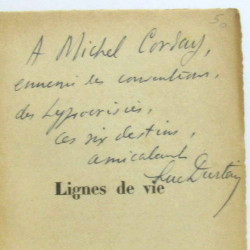 A Michel Corday,
ennemi des conventions,
des hypocrisies,
ces six destins,
amicalement
Luc Durtain
Lignes de vie